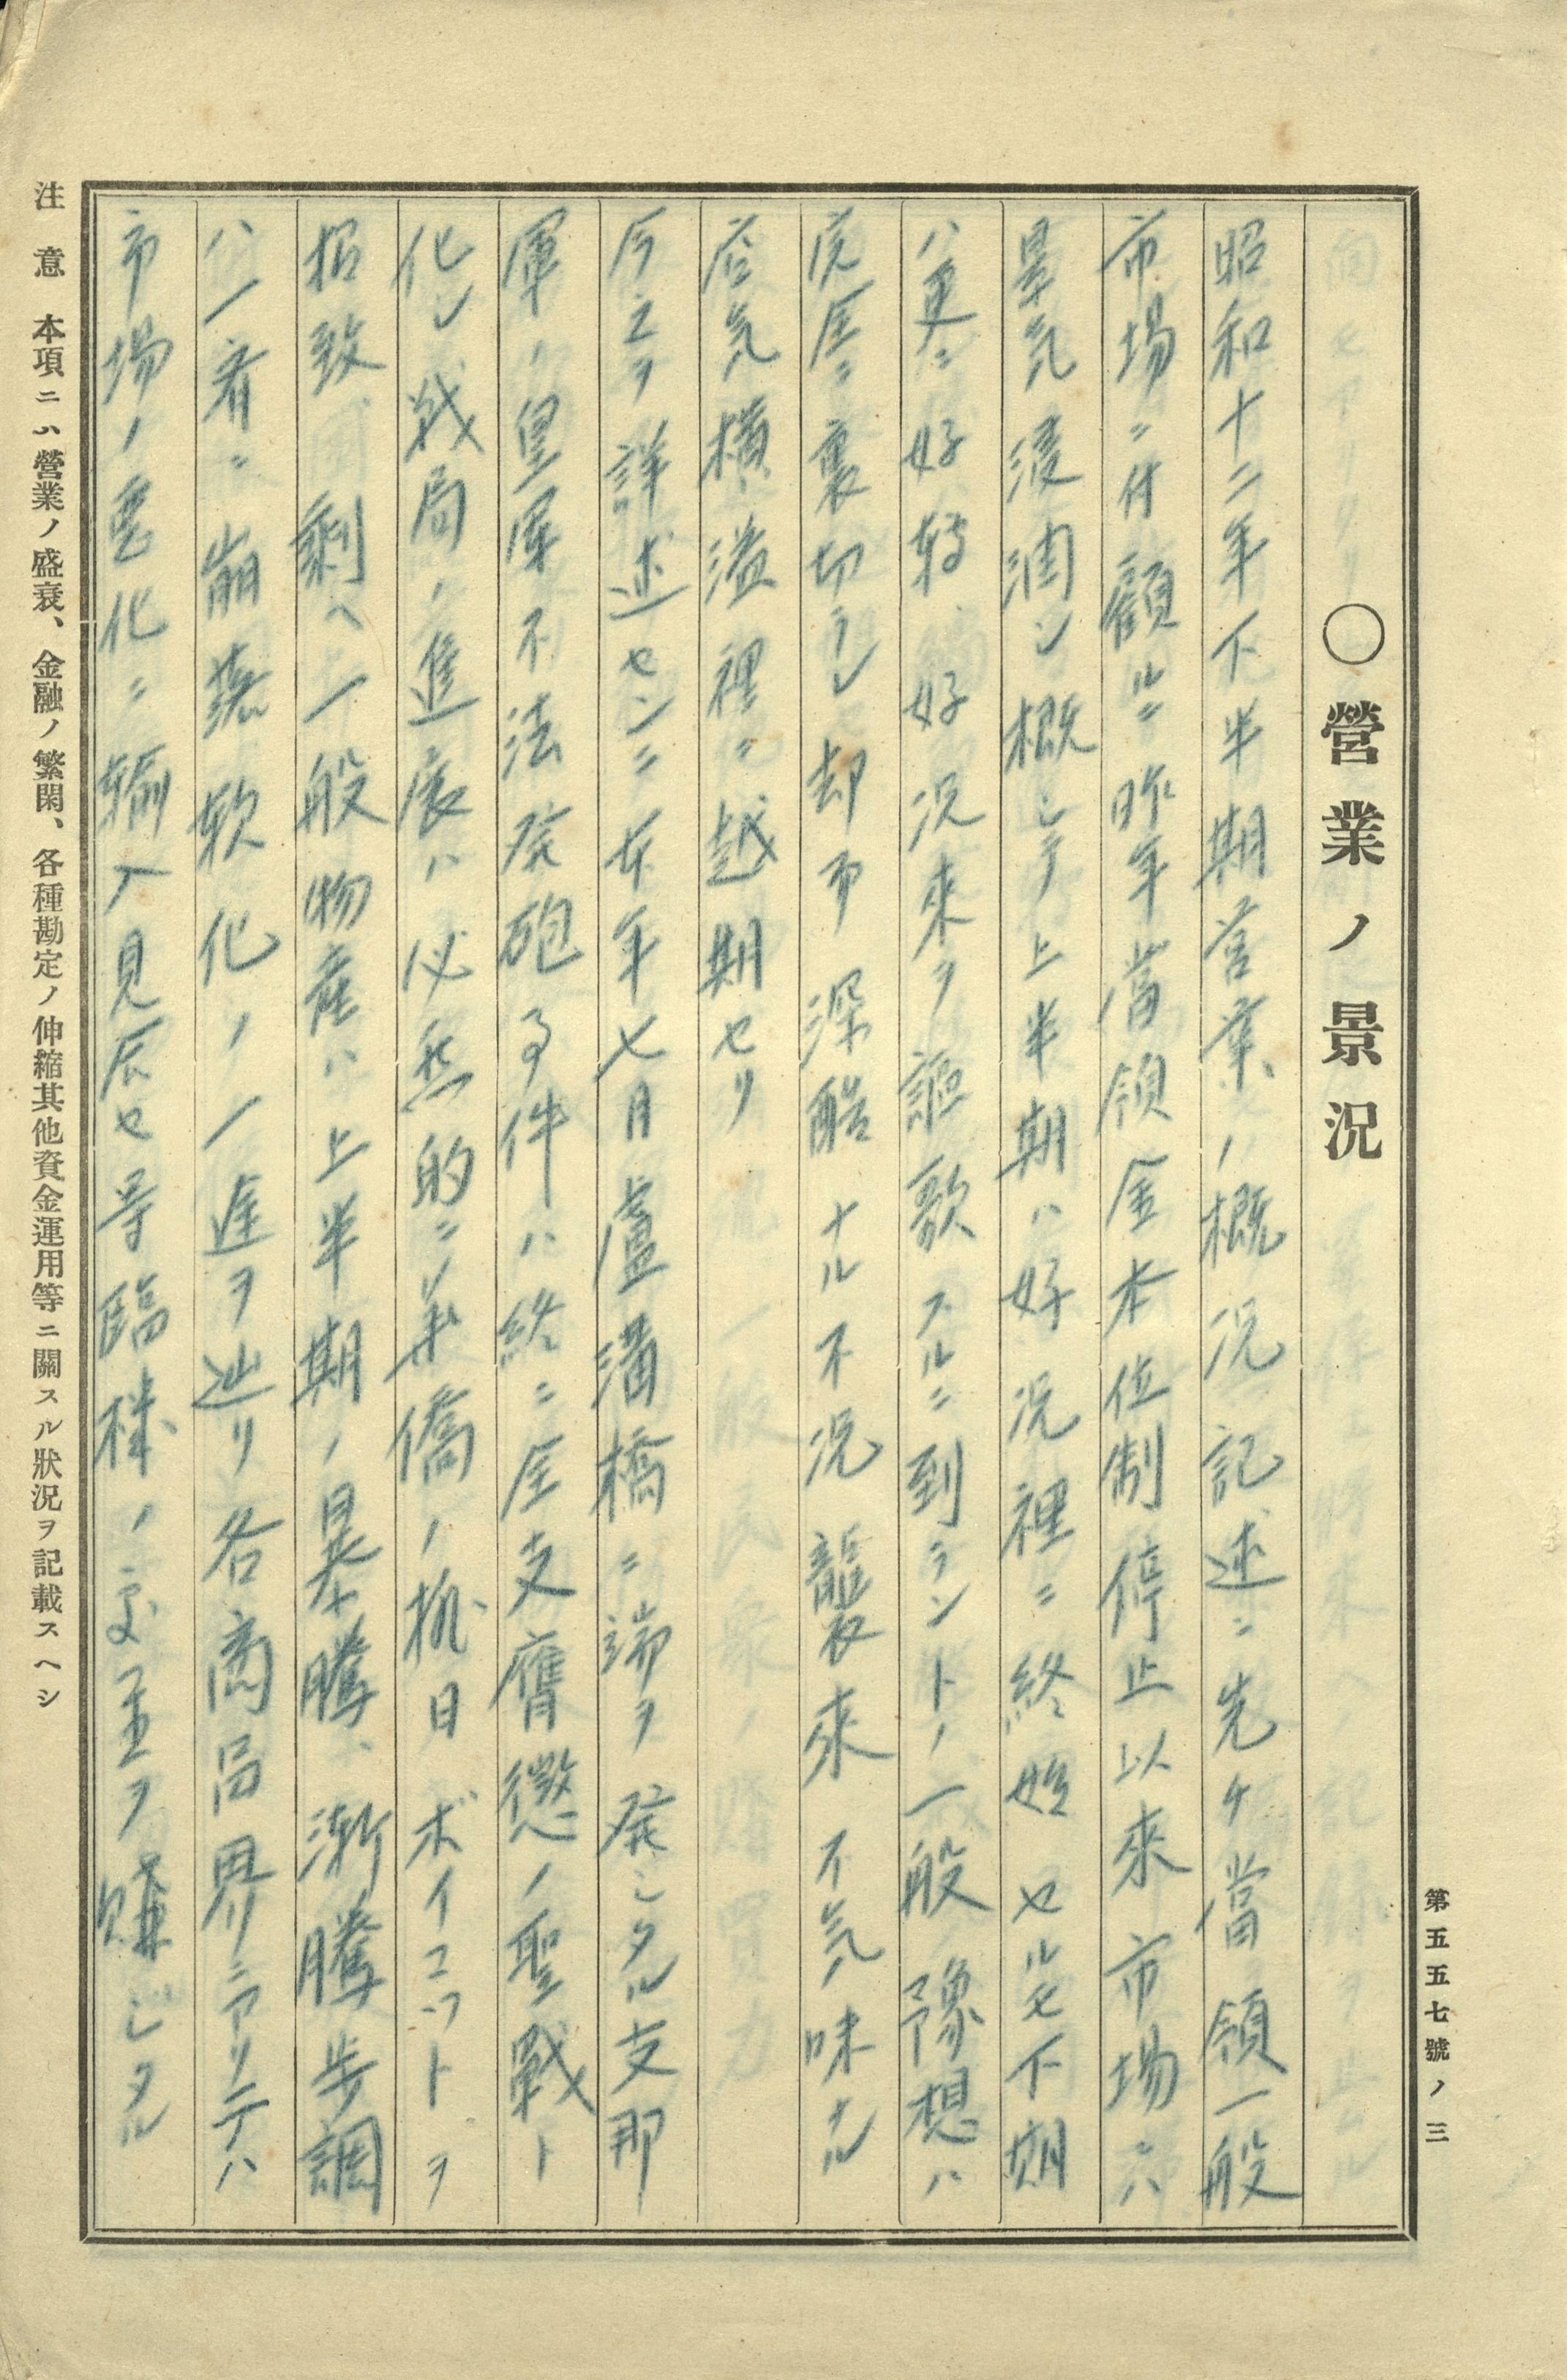 第五五七號ノ三
〇營業ノ景況
昭和十二年下半期營業ノ概況記述ニ先ケ當領一般
市場ニ付顧ルニ昨年當領金本位制停止以來市場ハ
景気浸潤シ概シテ上半期ハ好況裡ニ終始セルモ下期
ハ更ニ好轉、好況來ヲ謳歌スルニ到ラントノ一般豫想ハ
完全ニ裏切ラレ却而深酷ナル不況襲來不気味ナル
沓気横溢裡ニ越期セリ
今之ヲ詳述センニ本年七月盧溝橋ニ端ヲ発シタル支那
軍ノ皇軍不法発砲事件ハ終ニ全支膺懲ノ聖戰ト
化シ戦局ノ進展ハ必然的ニ華僑ノ排日ボイコットヲ
招致、剰ヘ一般物産ハ上半期ノ暴騰、漸騰歩調
ハ一齊ニ崩落軟化ノ一途ヲ辿リ各商品界ニアリテハ
市場ノ悪化ニ輸入見反セ等臨機ノ処置ヲ講ジタル
注意 本項ニハ營業ノ盛衰、金融ノ繁閑、各種勘定ノ伸縮其他資金運用等ニ關スル狀況ヲ記載スヘシ